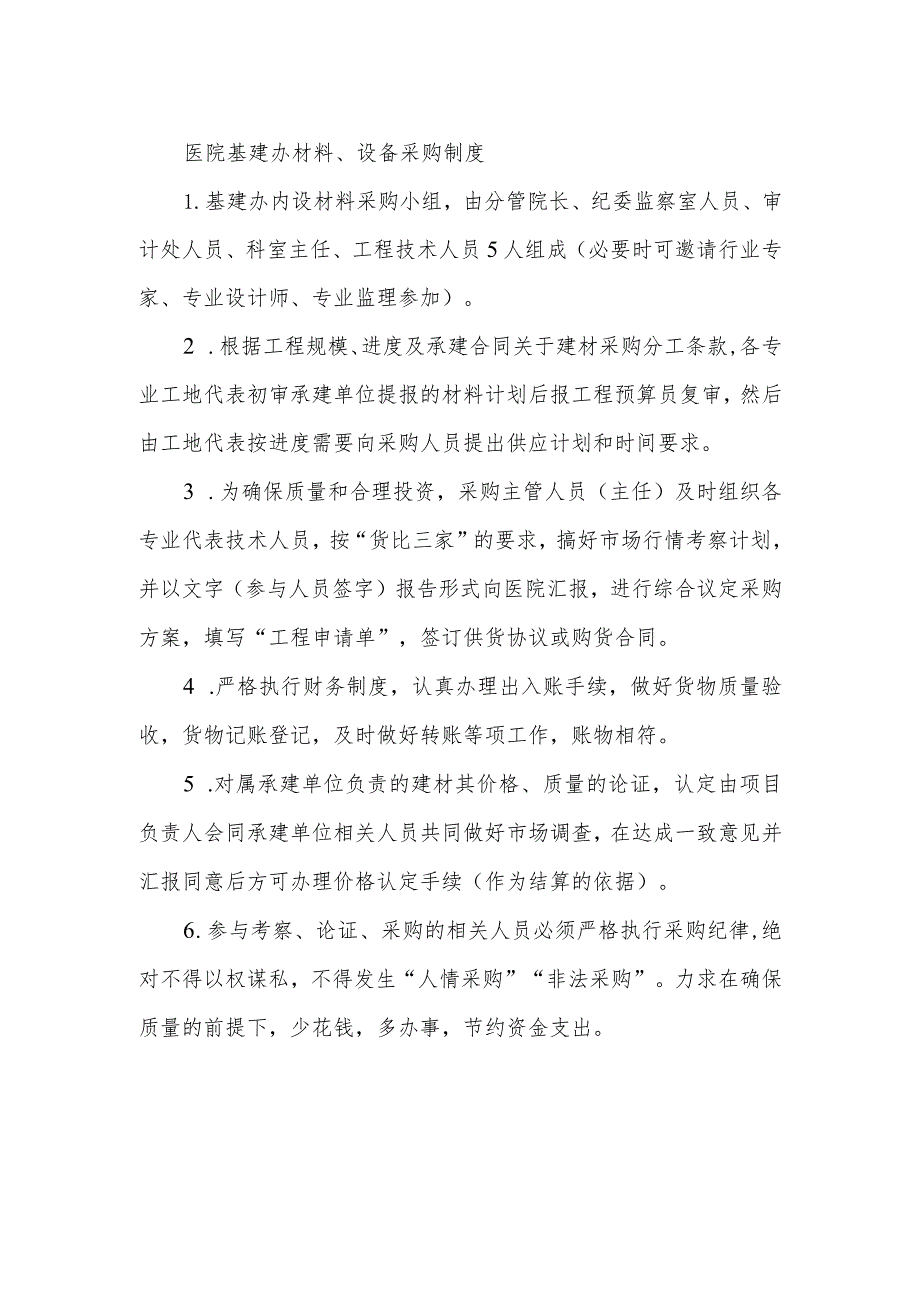 医院基建办材料、设备采购制度
1. 基建办内设材料采购小组，由分管院长、纪委监察室人员、审
计处人员、科室主任、工程技术人员5人组成（必要时可邀请行业专
家、专业设计师、专业监理参加）。
2 .根据工程规模、进度及承建合同关于建材采购分工条款,各专
业工地代表初审承建单位提报的材料计划后报工程预算员复审，然后
由工地代表按进度需要向采购人员提出供应计划和时间要求。
3 .为确保质量和合理投资，采购主管人员（主任）及时组织各
专业代表技术人员，按“货比三家”的要求，搞好市场行情考察计划，
并以文字（参与人员签字）报告形式向医院汇报，进行综合议定采购
方案，填写“工程申请单”，签订供货协议或购货合同。
4 .严格执行财务制度，认真办理出入账手续，做好货物质量验
收，货物记账登记，及时做好转账等项工作，账物相符。
5 .对属承建单位负责的建材其价格、质量的论证，认定由项目
负责人会同承建单位相关人员共同做好市场调查，在达成一致意见并
汇报同意后方可办理价格认定手续（作为结算的依据）。
6. 参与考察、论证、采购的相关人员必须严格执行采购纪律,绝
对不得以权谋私，不得发生“人情采购”“非法采购”。力求在确保
质量的前提下，少花钱，多办事，节约资金支出。